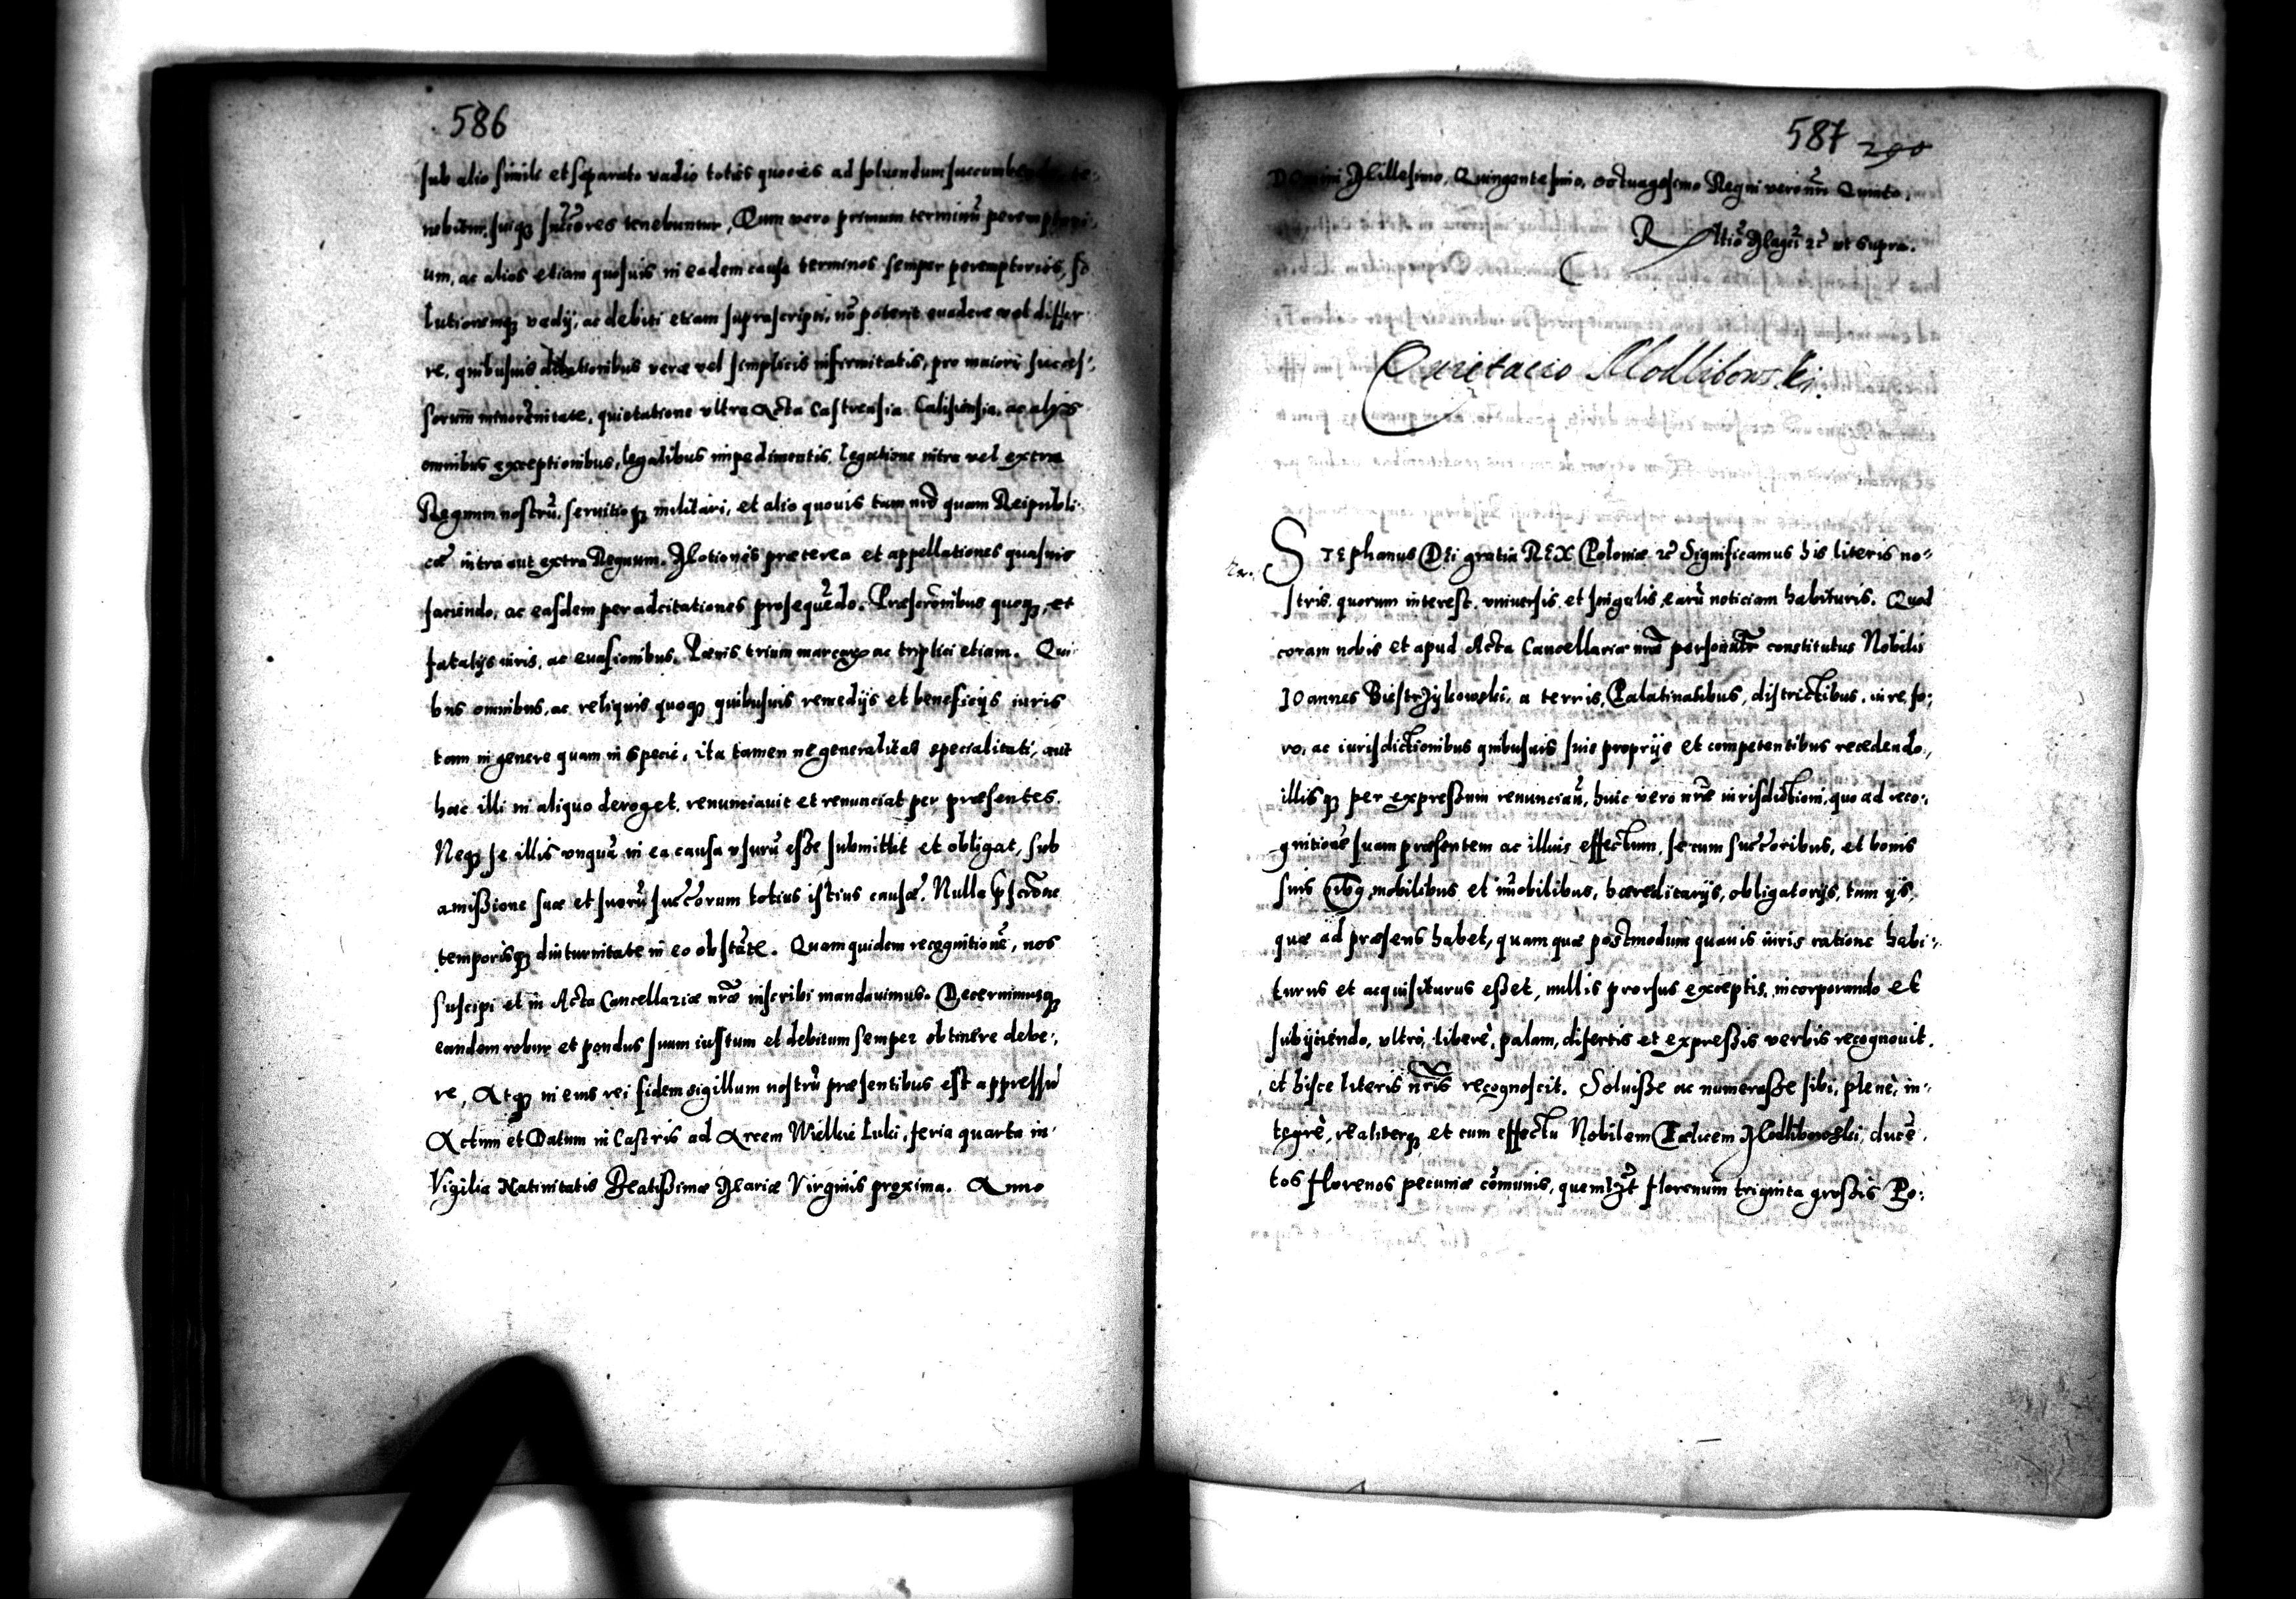 586
sub alio simili et separato vadio toties quoties ad soluendum succumbendo te-
nebitur, suiq; succ̃ores tenebuntur, Cum vero primum terminũ peremptori-
um, ac alios etiam quosuis in eadem causa terminos semper peremptorios, so
lutionemq; vadij, ac debiti etiam suprascripti, nõ poterit euadere vel differ
re, quibusuis dilationibus verae vel simplicis infirmitatis, pro maiori succes-
sorum minorẽnitate, quietatione vltra Acta Castrensia Calisiensia, ac alys
omnibus exceptionibus, legalibus impedimentis, legatione intra vel extra
Regnum nostrũ, seruitioq; militari, et alio quouis tam nrõ quam Reipubli-
cae intra aut extra Regnum. Motiones praeterea et appellationes quasuis
faciendo, ac easdem per adcitationes prosequẽdo. Praescrõnibus quoq; et
fatalijs iuris, ac euasionibus. Poenis trium marcarum ac triplici etiam. Qui-
bus omnibus, ac reliquis quoq; quibusuis remedijs et beneficijs iuris
tam in genere quam in specie, ita tamen ne generalitas specialitati, aut
haec illi in aliquo deroget, renunciauit et renunciat per praesentes.
Neq; se illis vnquã in ea causa vsurũ esße submittit et obligat, sub
amißione suae et suorũ succ̃orum totius istius causae. Nulla p̱scrõne
temporisq; diuturnitate in eo obstãte. Quam quidem recognitionẽ, nos
suscipi et in Acta Cancellariae nrae inscribi mandauimus. Decernimusq;
eandem robur et pondus suum iustum et debitum semper obtinere debe-,
re, Atq; in eius rei fidem sigillum nostrũ praesentibus est appressũ
Actum et Datum in Castris ad Arcem Wielkie Luki, feria quarta in
Vigilia Natiuitatis Beatißimae Mariae Virginis proxima. Anno
587 290
Domini Millesimo, Quingentesimo, octuagesimo Regni vero nri Quinto.
Rltio Magci zc̃ vt supra.
Quietacio Modlibowski.
STEphanus Dei gratia REX Poloniae zc̃ Significamus his literis no-
stris, quorum interest, vniuersis et singulis, earũ noticiam habituris. Quod
coram nobis et apud Acta Cancellariae nrae personalr̃ constitutus Nobilis
IOannes Biestrzykowski, a terris, Palatinatibus, districtibus, iure, fo-
ro, ac iurisdictionibus quibusuis suis proprijs et competentibus recedendo,
illisq; per expreßum renunciañ, huic vero nrae iurisdictioni, quo ad reco-
gnitionẽ suam praesentem ac illius effectum, se cum succ̃oribus, et bonis
suis oibq, mobilibus et im̃obilibus, haereditarijs, obligatorijs, tam ijs,
quae ad praesens habet, quam quae postmodum quauis iuris ratione habi-
turus et acquisiturus eßet, nullis prorsus exceptis, incorporando et
subijciendo, vltrò, liberè, palam, disertis et expreßis verbis recognouit.
et hisce literis nris recognoscit. Soluiße ac numeraße sibi, plenè, in-
tegrè, realiterq; et cum effectu Nobilem Foelicem Modlibowski, ducẽ
tos florenos pecuniae cõmunis, quemlz̃t florenum triginta großis Po-